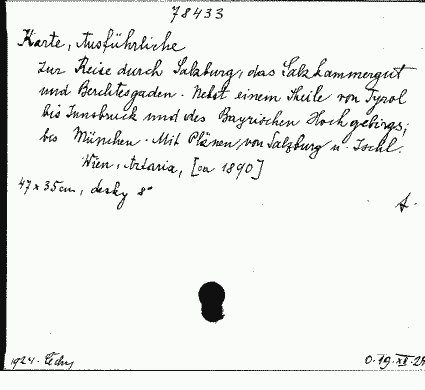 78433
Karte, Ausführliche
zur Reise durch Salzburg, das Salzkammergut
und Berchtesgaden. Nebst einem Theile von Tyrol
bis Innsbruck und des Bayrischen Hochgebirgs,
bis München. Mit Plänen von Salzburg u. Ischl.
Wien, Artaria, [ca 1890]
47 x 35 cm, desky 8°
A.
1924. 
0.19.XII.24